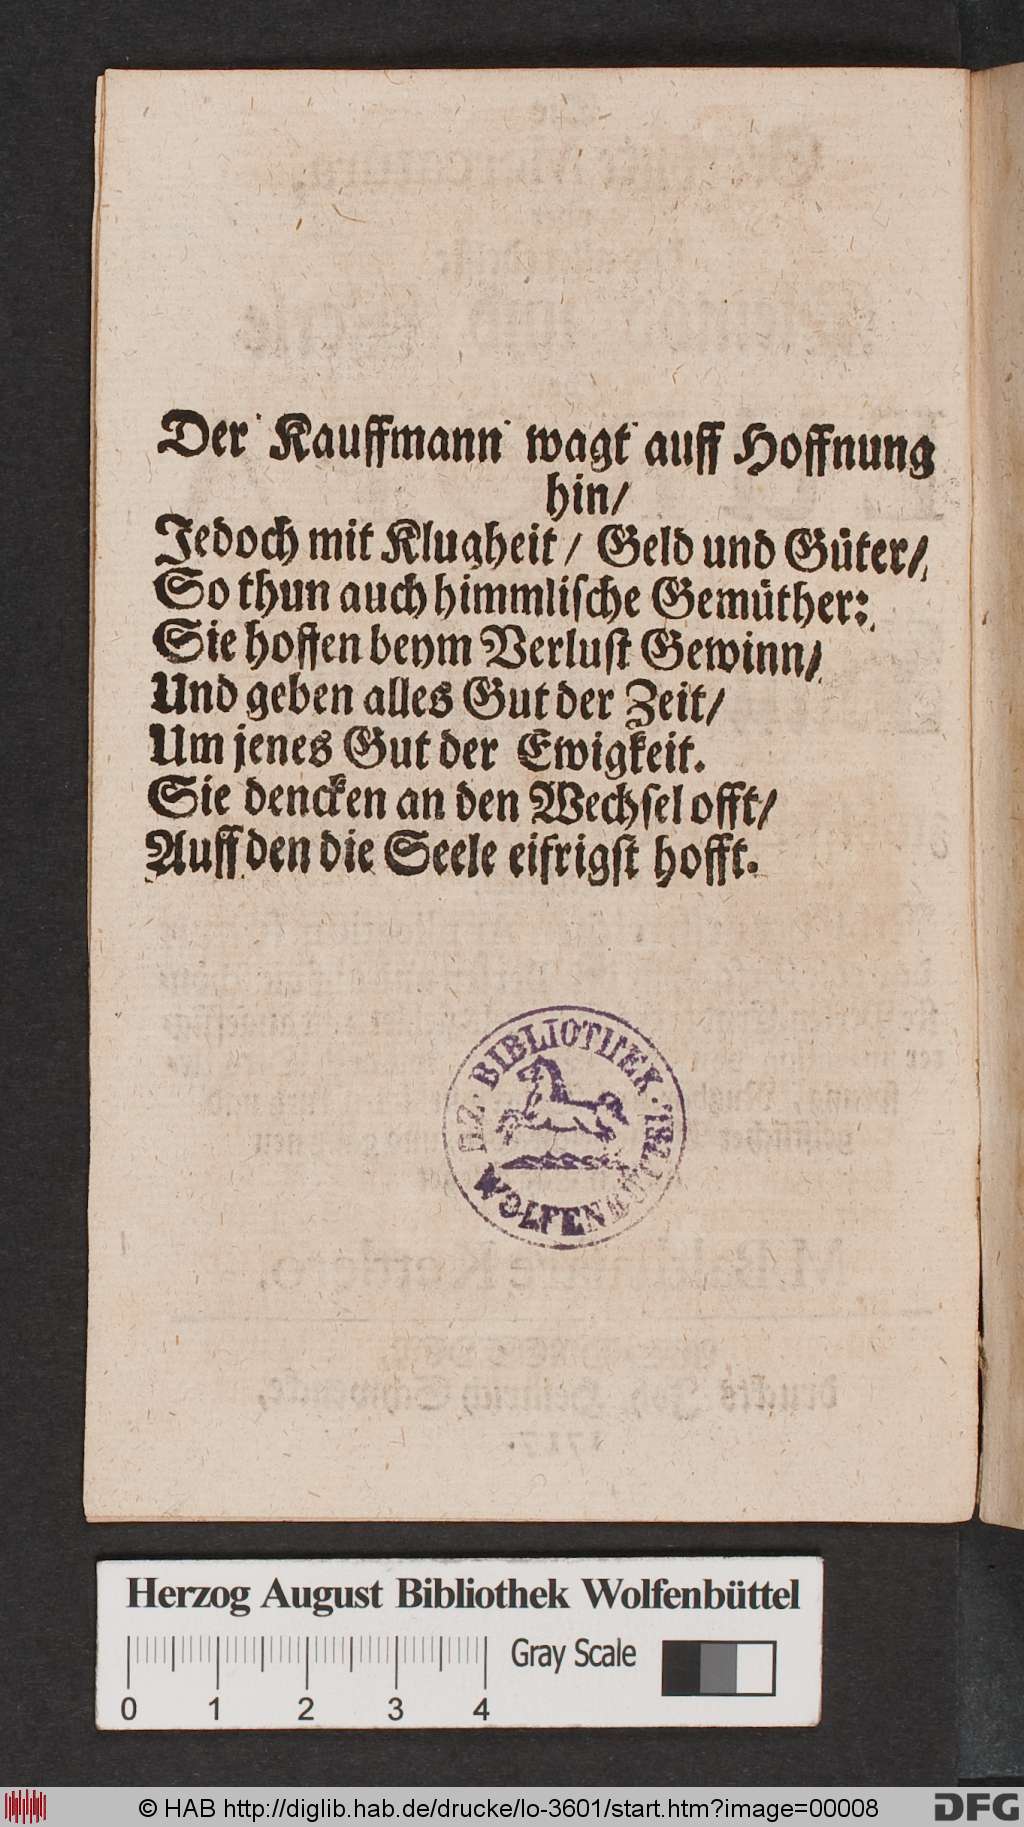 Der Kauffmann wagt auff Hoffnung
hin/
Jedoch mit Klugheit / Geld und Güter/
So thun auch himmlische Gemüther:
Sie hoffen beym Verlust Gewinn/
Und geben alles Gut der Zeit/
Um jenes Gut der Ewigkeit.
Sie dencken an den Wechsel offt/
Auff den die Seele eifrigst hofft.
HZ. BIBLIOTHEK.
WOLFENBÜTTEL
Herzog August Bibliothek Wolfenbüttel
Gray Scale
0 1 2 3 4
© HAB http://diglib.hab.de/drucke/lo-3601/start.htm?image=00008
DFG